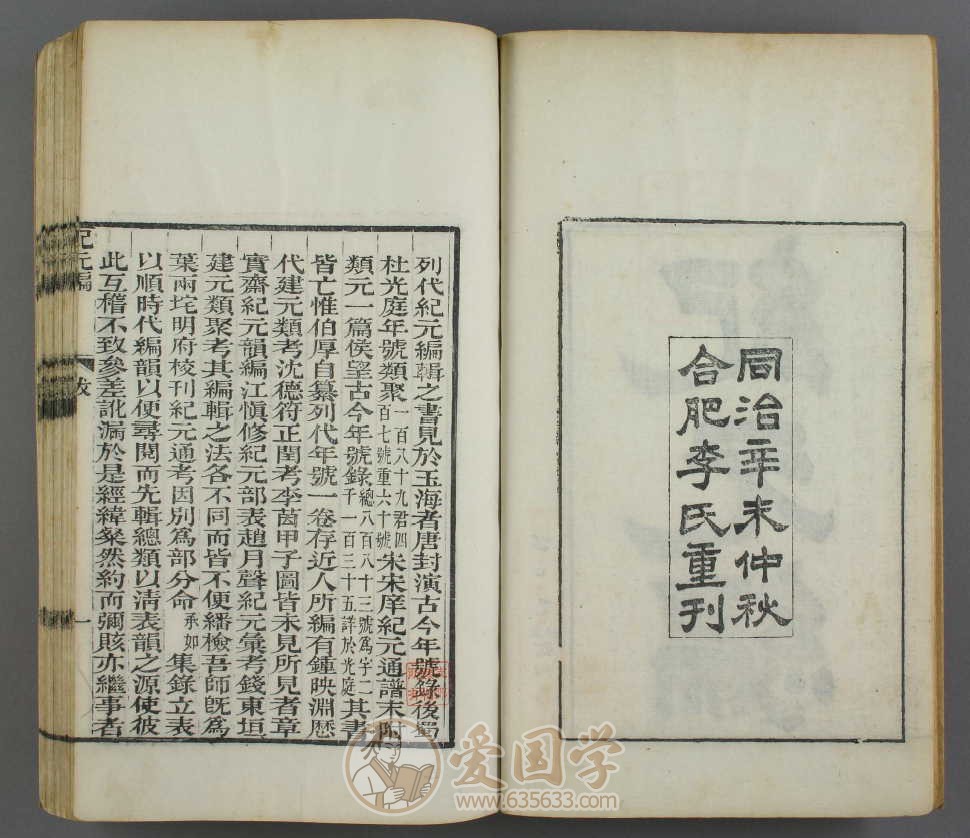 同治辛未仲秋
合肥李氏重刊
列代紀元編輯之書見於玉海者唐封演古今年號錄後蜀
杜光庭年號類聚一百八十九君四百七號重六十號宋宋庠紀元通譜末附
類元一篇侯望古今年號錄總八百八十三號爲字二千一百三十五詳於光庭其書
皆亡惟伯厚自纂列代年號一卷存近人所編有鍾映淵歷
代建元類考沈德符正閏考李茵甲子圖皆未見所見者章
實齋紀元韻編江愼修紀元部表趙月聲紀元彙考錢東垣
建元類聚考其編輯之法各不同而皆不便繙檢吾師旣爲
葉兩垞明府校刊紀元通考因別爲部分命承如集錄立表
以順時代編韻以便尋閱而先輯總類以淸表韻之源使彼
此互稽不致參差訛漏於是經緯粲然約而彌賅亦繼事者
紀元編
一
爱国学
www.635633.com